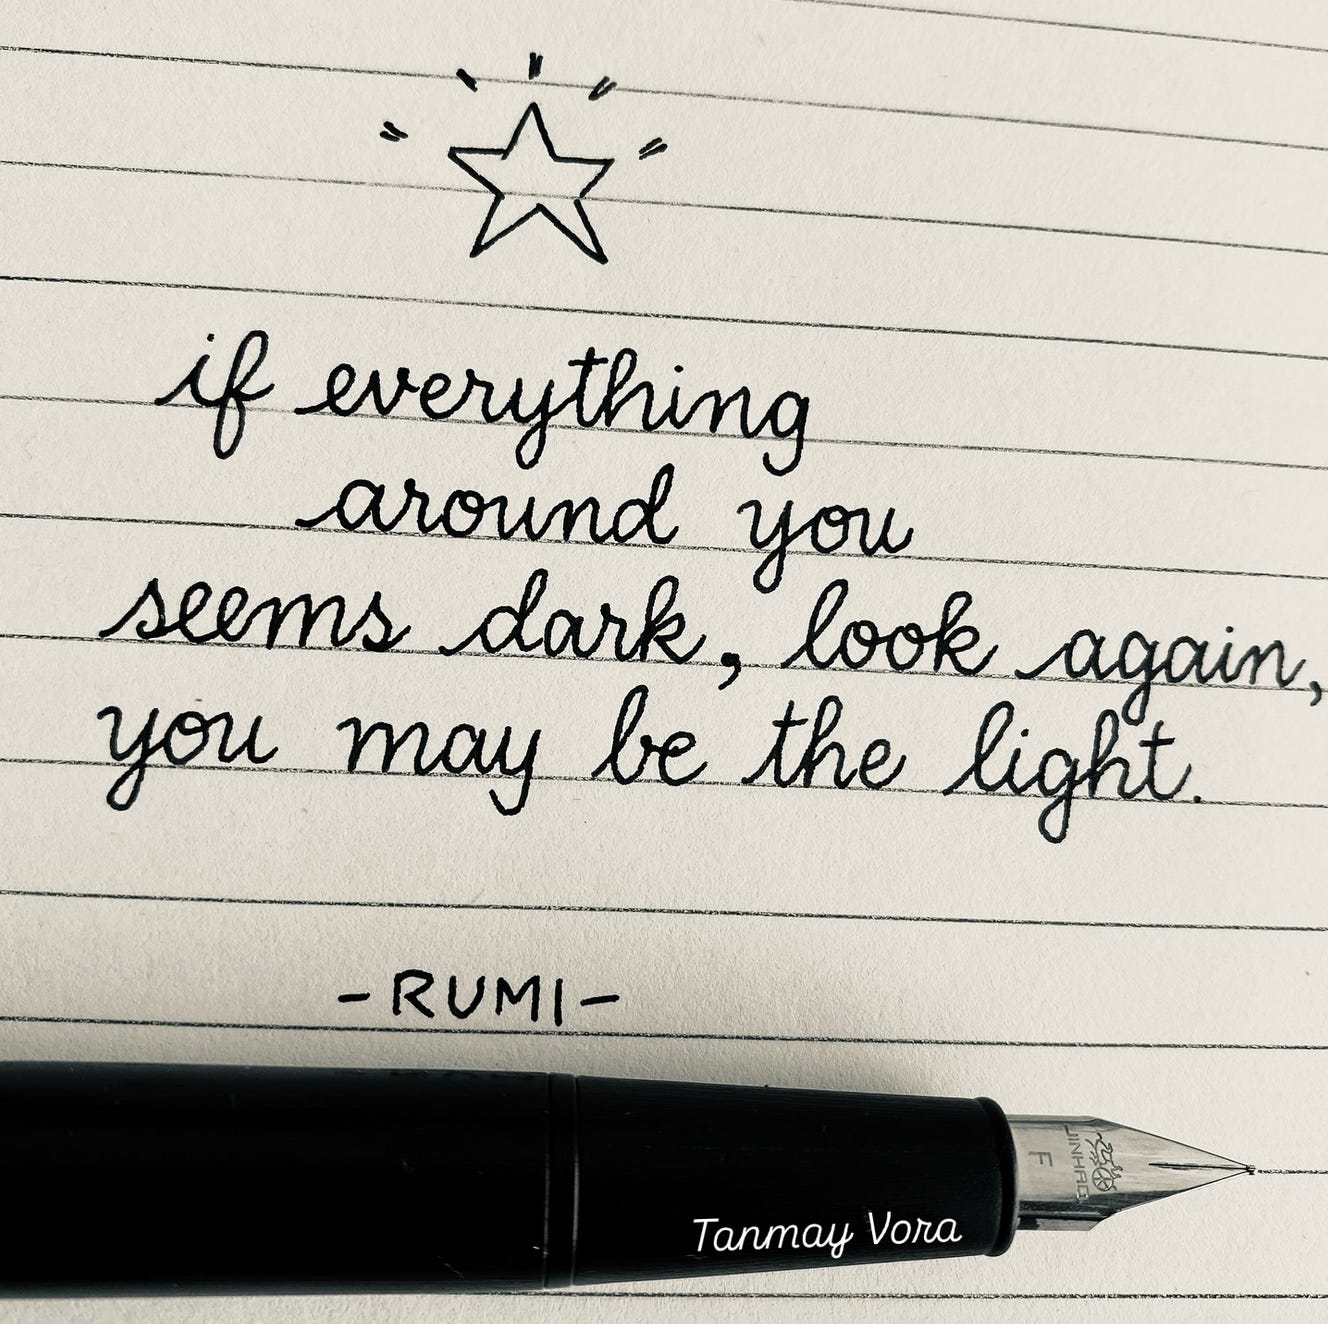 if everything
around you
seems dark, look again,
you may be the light.
-RUMI-
F
JINHAO
Tanmay Vora